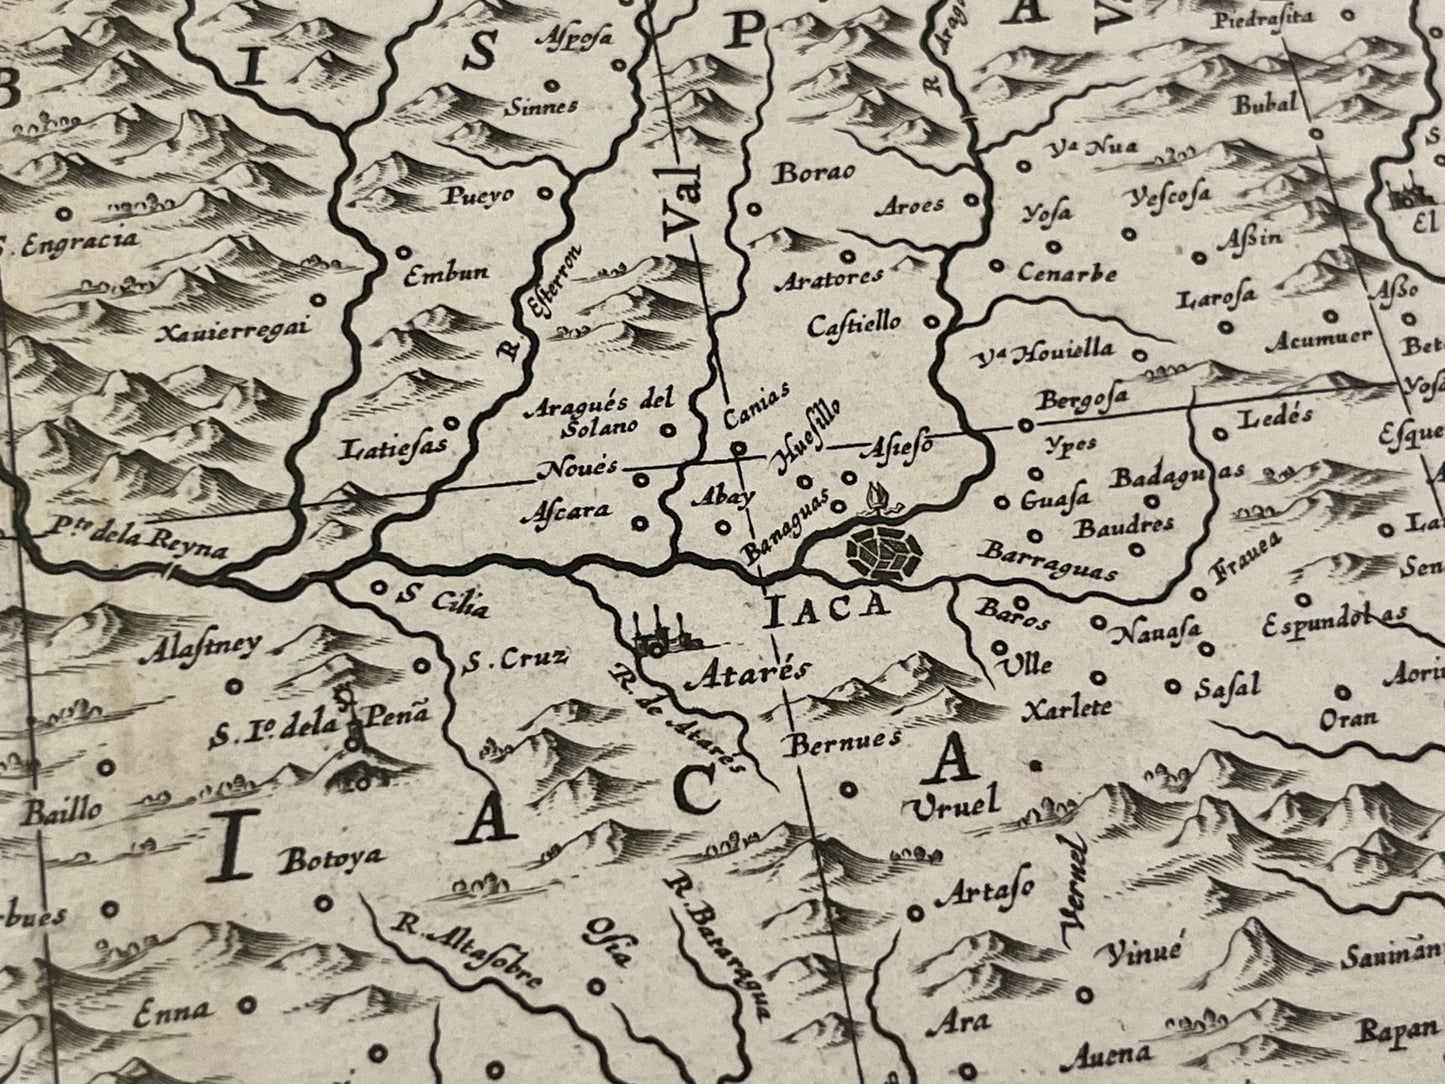 Piedraſita
A
V
P
S
I
B
Aſpoſa
Sinnes
R
Arag
Bubal
Vª Nua
Borao
Pueyo
Val
Aroes
Yoſa
Yeſcoſa
S. Engracia
Aßin
El
Embun
R. Eſterron
Aratores
Cenarbe
Laroſa
Aßo
Xauierregai
Caſtiello
Acumuer
Vª Houiella
Bergoſa
Ledés
Yoſa
Aragués del
Solano
Canias
Hueſillo
Aſieſo
Ypes
Latieſas
Noués
Abay
Guaſa
Badaguas
Aſcara
Banaguas
Baudres
Pte dela Reyna
Barraguas
Frauea
S. Cilia
IACA
Baros
Nauaſa
Eſpundolas
Alaſtney
S. Cruz
Atarés
Ulle
R. de Atares
Xarlete
Saſal
Oran
S. Iº. dela Penã
Bernues
Baillo
I
A
C
A
Uruel
Botoya
Artaſo
Vernel
R. Altaſobre
Oſia
R. Bataragua
Yinué
Enna
Ara
Auena
Rapan